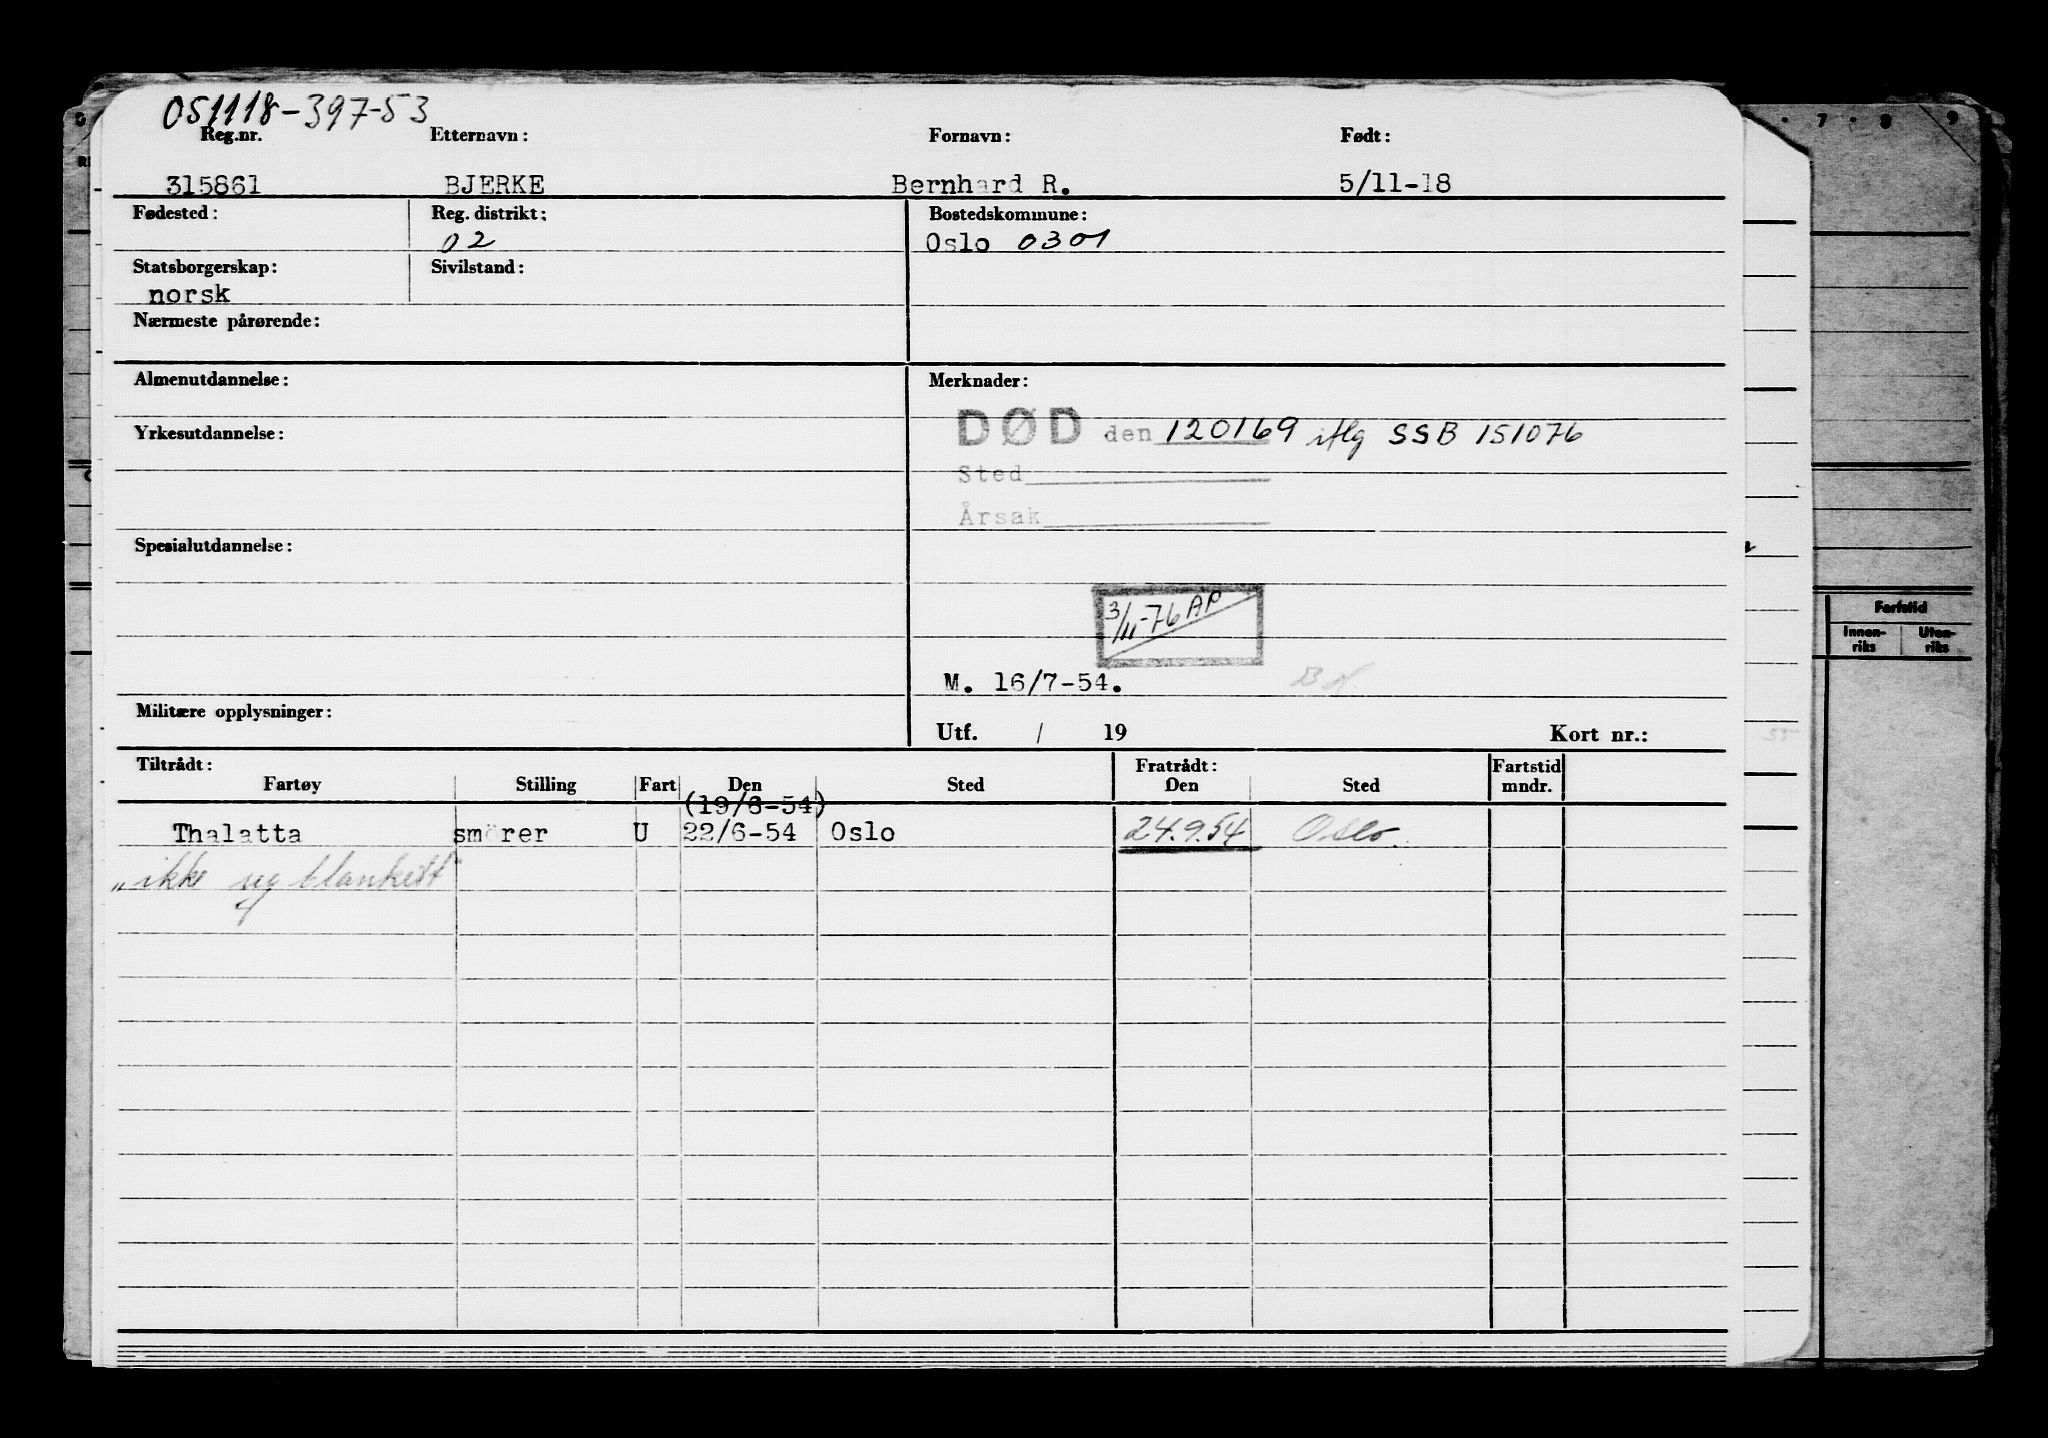 051118-397-53
Reg.nr. Etternavn: Fornavn: Født:
315861 BJERKE Bernhard R. 5/11-18
Fødested: Reg. distrikt: Bostedskommune:
02 Oslo 0301
Statsborgerskap: Sivilstand:
norsk
Nærmeste pårørende:
Almenutdannelse: Merknader:
Yrkesutdannelse: DØD den 120169 iflg SSB 151076
Sted
Årsak
Spesialutdannelse:
3/11-76 AP
M. 16/7-54.
Militære opplysninger:
Utf. / 19 Kort nr.:
Tiltrådt: Fratrådt: Fartstid
Fartøy Stilling Fart Den Sted Den Sted mndr.
(19/6-54)
Thalatta smörer U 22/6-54 Oslo 24.9.54 Oslo.
"ikke reg blankett"
7 8 9
Fartstid
Innen- Uten-
riks riks